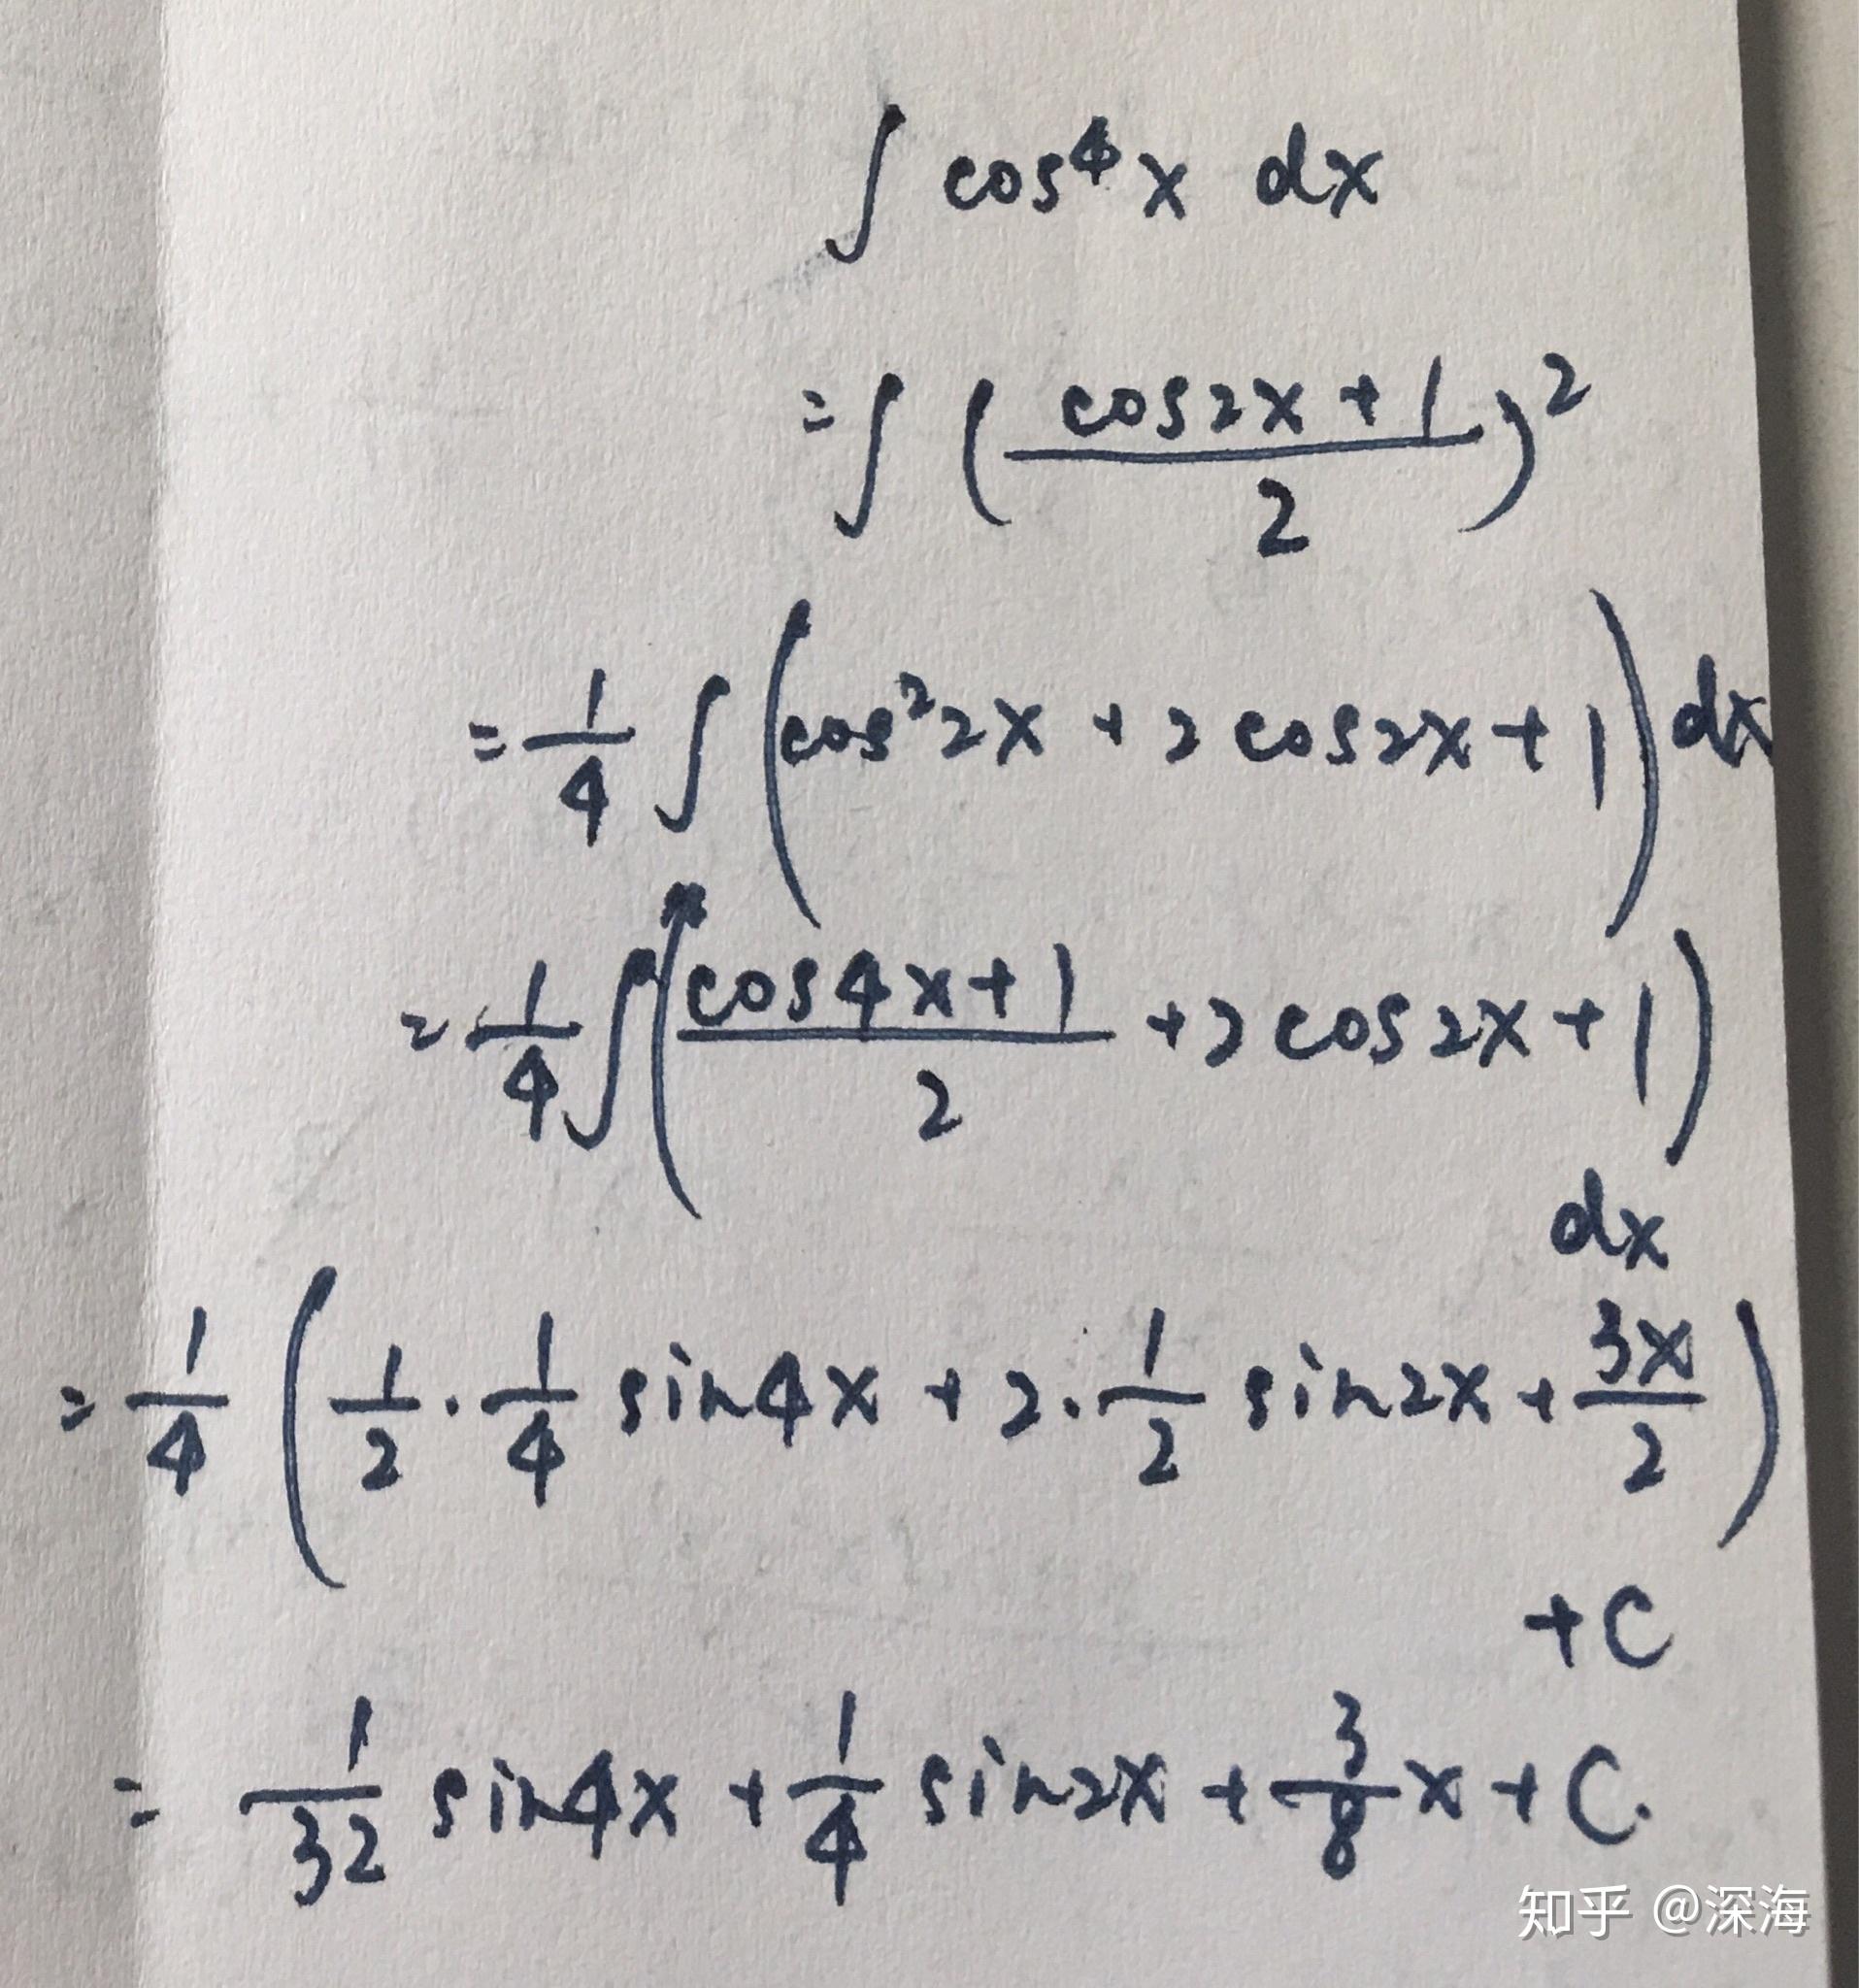 ∫ cos⁴x dx
=∫ (\frac{cos2x+1}{2})²
=\frac{1}{4} ∫ (cos²2x + 2cos2x + 1) dx
=\frac{1}{4} ∫ (\frac{cos4x+1}{2} + 2cos2x + 1)
dx
=\frac{1}{4} (\frac{1}{2}·\frac{1}{4} sin4x + 2·\frac{1}{2} sin2x + \frac{3x}{2})
+C
= \frac{1}{32} sin4x + \frac{1}{4} sin2x + \frac{3}{8}x + C.
知乎 @深海